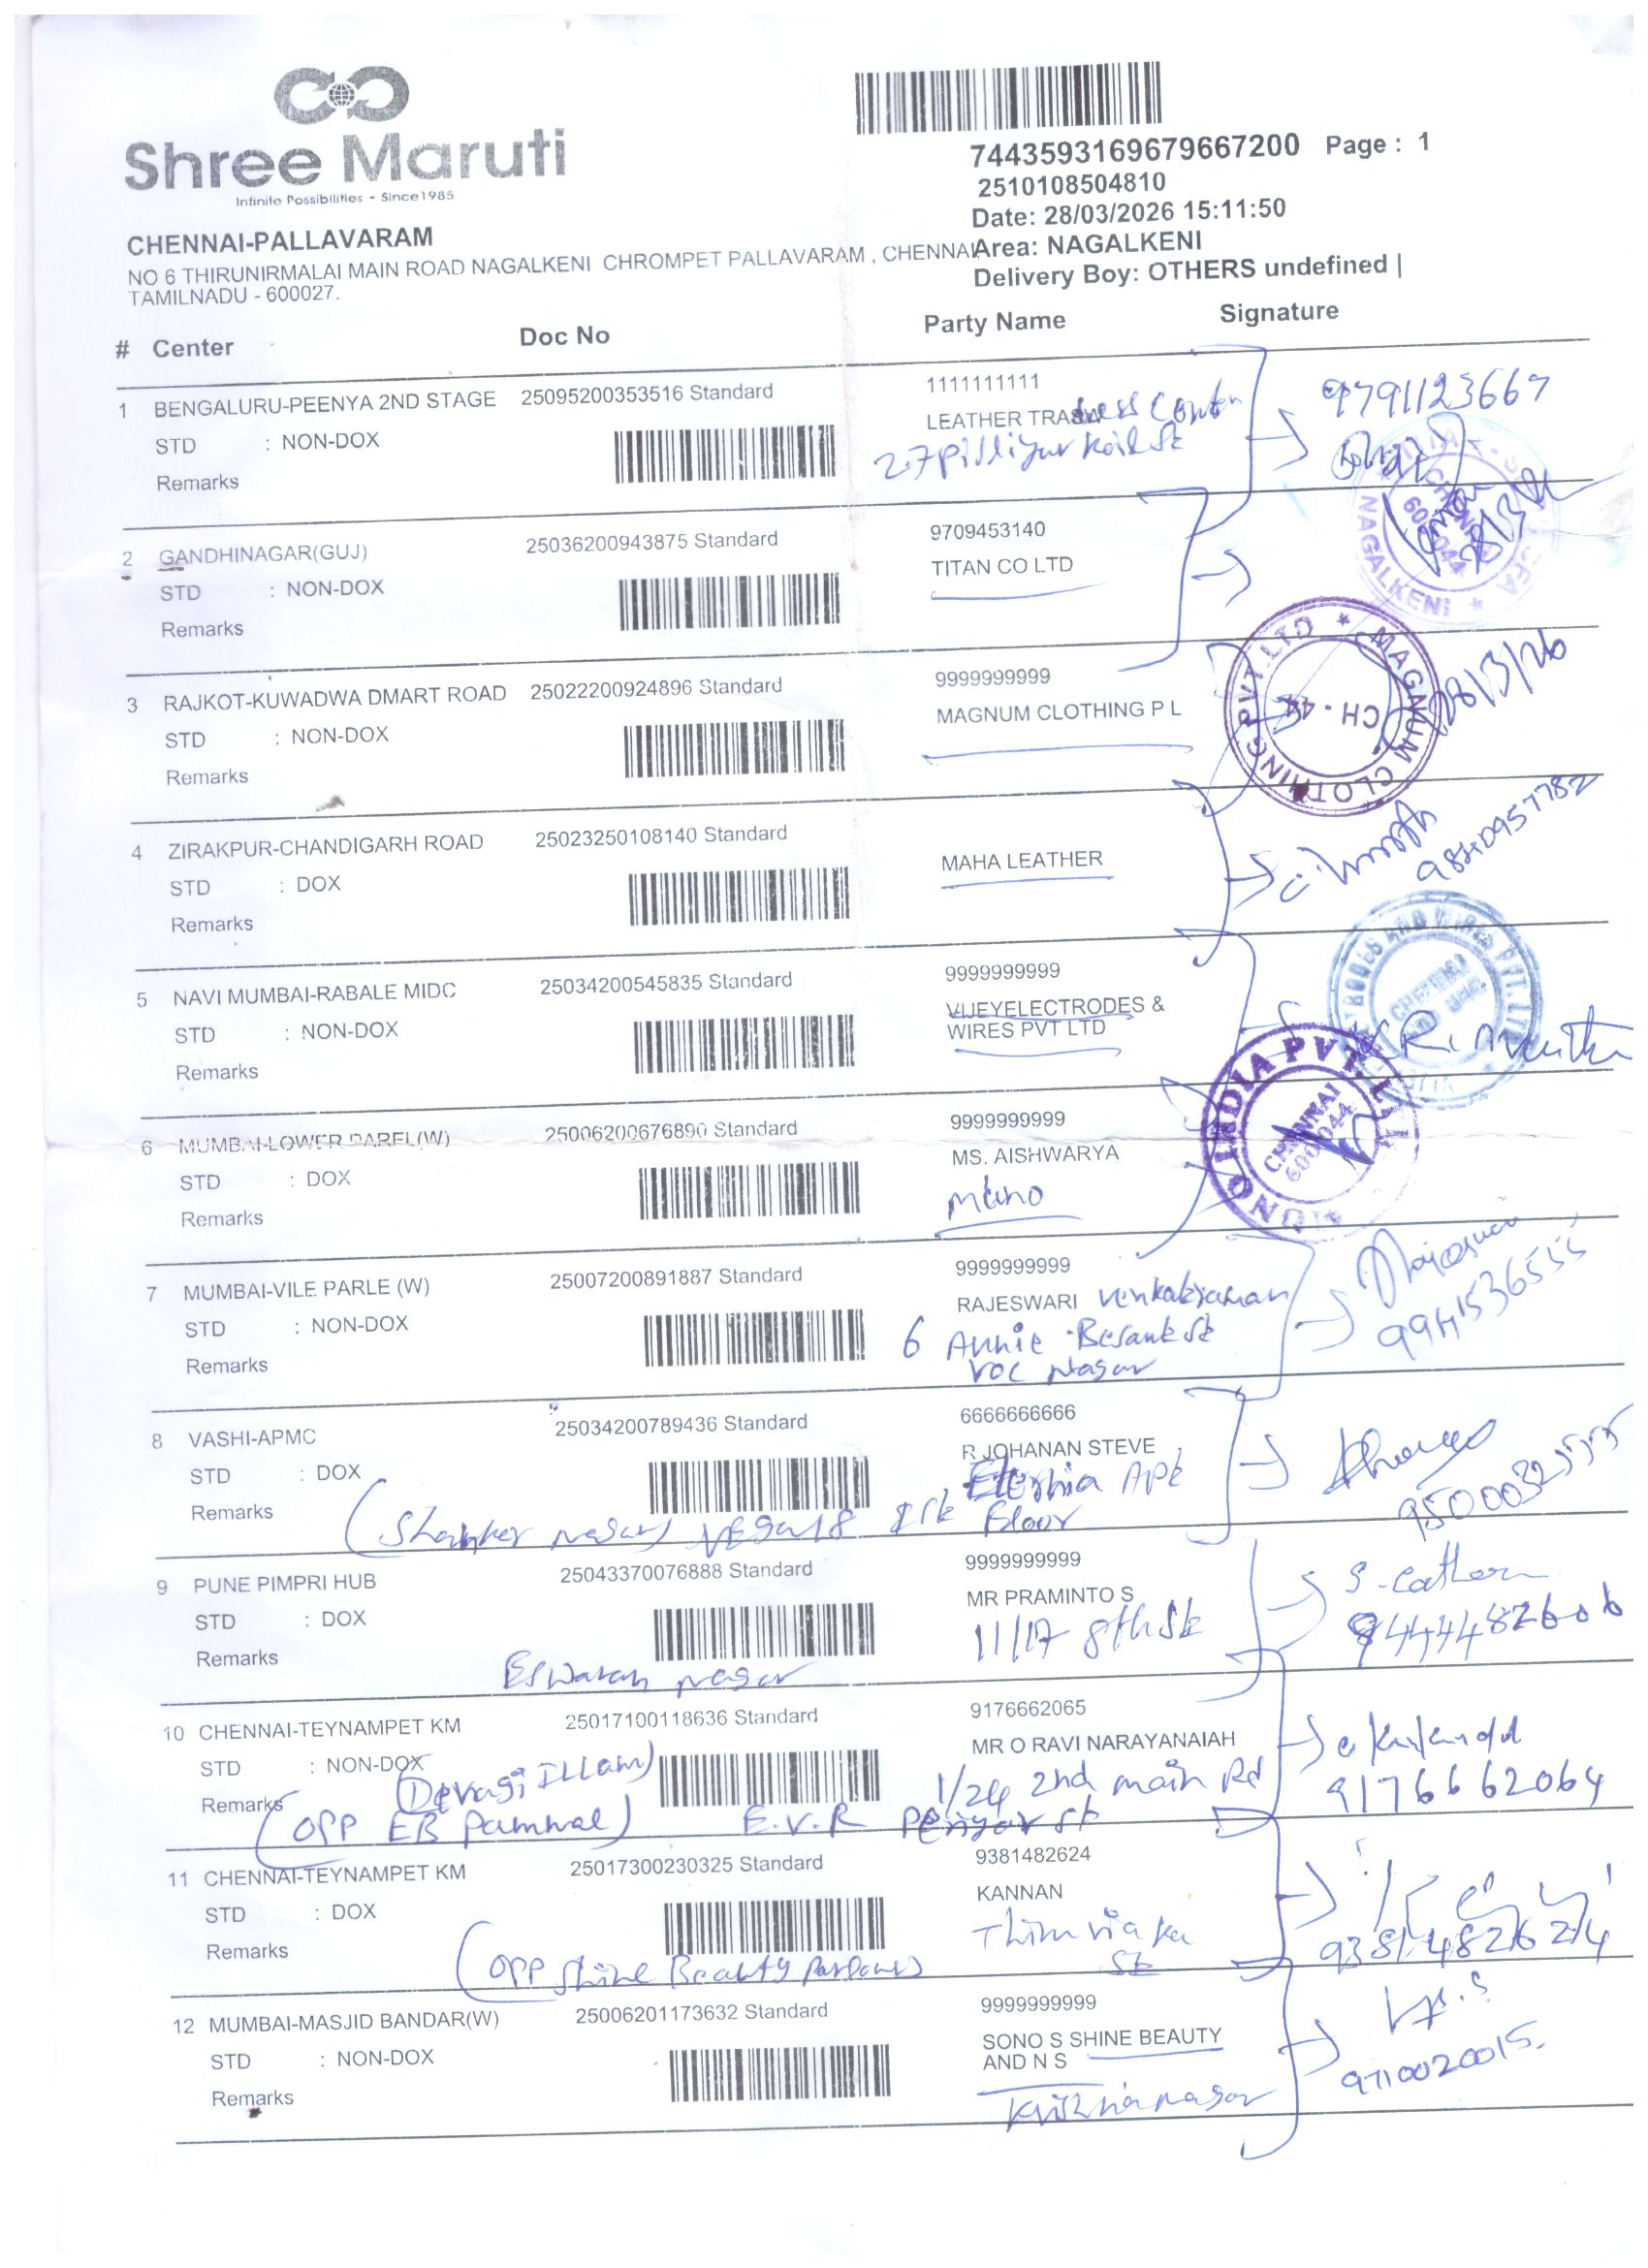 Shree Maruti
Infinite Possibilities - Since1985
7443593169679667200 Page : 1
2510108504810
Date: 28/03/2026 15:11:50
Area: NAGALKENI
Delivery Boy: OTHERS undefined |
CHENNAI-PALLAVARAM
NO 6 THIRUNIRMALAI MAIN ROAD NAGALKENI CHROMPET PALLAVARAM , CHENNAI
TAMILNADU - 600027.
# Center Doc No Party Name Signature
1 BENGALURU-PEENYA 2ND STAGE 25095200353516 Standard 1111111111
LEATHER TRASW
9791123667
STD : NON-DOX
27 Pilliyar Koil St
Remarks
CHENNAI 600044
NAGALKENI
2 GANDHINAGAR(GUJ) 25036200943875 Standard 9709453140
TITAN CO LTD
STD : NON-DOX
Remarks
3 RAJKOT-KUWADWA DMART ROAD 25022200924896 Standard 9999999999
MAGNUM CLOTHING P L
STD : NON-DOX
Remarks
MAGNUM CLOTHING PVT.LTD
CH - 44
28/3/26
4 ZIRAKPUR-CHANDIGARH ROAD 25023250108140 Standard
MAHA LEATHER
STD : DOX
Remarks
9840957782
5 NAVI MUMBAI-RABALE MIDC 25034200545835 Standard 9999999999
VIJEYELECTRODES &
WIRES PVT LTD
STD : NON-DOX
Remarks
6 MUMBAI-LOWER PAREL(W) 25006200676890 Standard 9999999999
MS. AISHWARYA
STD : DOX
Remarks
INDIA PVT. LTD
CHENNAI 600044
7 MUMBAI-VILE PARLE (W) 25007200891887 Standard 9999999999
RAJESWARI Venkatraman
STD : NON-DOX
6 Annie Besant St
VOC Nagar
Remarks
9941536555
8 VASHI-APMC 25034200789436 Standard 6666666666
R JOHANAN STEVE
STD : DOX
Eternia Apt
Remarks
Shanker Nagar
Floor
9500032555
9 PUNE PIMPRI HUB 25043370076888 Standard 9999999999
MR PRAMINTO S
STD : DOX
11/17 8th St
Remarks
Eswaran Nagar
9444482606
10 CHENNAI-TEYNAMPET KM 25017100118636 Standard 9176662065
MR O RAVI NARAYANAIAH
STD : NON-DOX
Devagi Illam)
1/24 2nd main Rd
9176662064
Remarks
(OPP EB Pammal) E.V.R Periyar St
11 CHENNAI-TEYNAMPET KM 25017300230325 Standard 9381482624
KANNAN
STD : DOX
St
Remarks
(OPP Shine Beauty Parlour)
9381482624
12 MUMBAI-MASJID BANDAR(W) 25006201173632 Standard 9999999999
SONO S SHINE BEAUTY
AND N S
STD : NON-DOX
Remarks
Krishna nagar
9710020015.